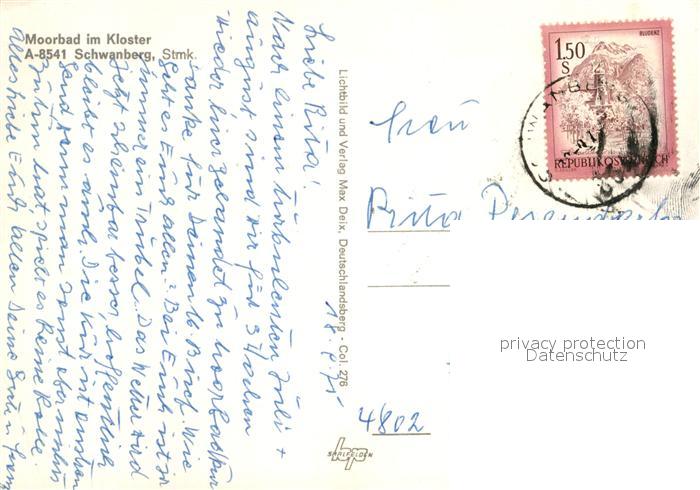 Moorbad im Kloster
A-8541 Schwanberg, Stmk.
Liebe Rita!
Nach einem turbulenten Juli +
august sind wir für 3 Wochen
wieder hier gelandet zu Moorbadkur
Danke für Deinen lb. Brief. Wie
geht es Euch allen? Bei Euch ist ja
immer ein Trubel. Das Wetter wird
jetzt scheinbar besser, hoffentlich
bleibt es auch. Die Kur ist anstren
gend wenn man sonst aber nichts
zu tun hat, spielt es keine Rolle.
Alles Liebe Euch allen Deine
18. 75
Lichtbild und Verlag Max Deix, Deutschlandsberg - Col. 276
BLUDENZ
1.50
S
REPUBLIK ÖSTERREICH
Frau
Rita
4802
privacy protection
Datenschutz
hp
SAALFELDEN